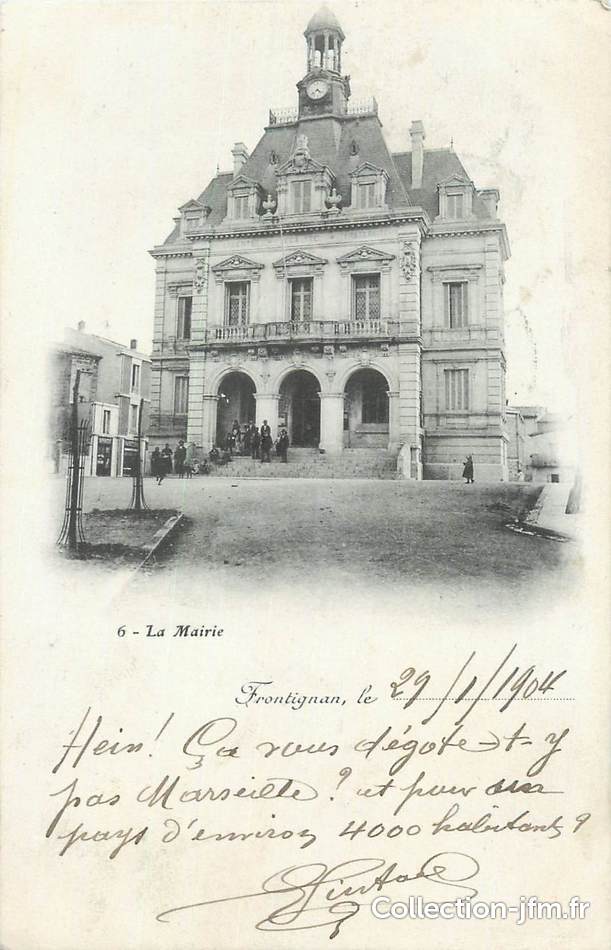 6 - La Mairie
Frontignan, le 29/1/1904
Hein! Ça vous dégote-t-y
pas Marseille? et pour un
pays d'environ 4000 habitants?
Collection-jfm.fr